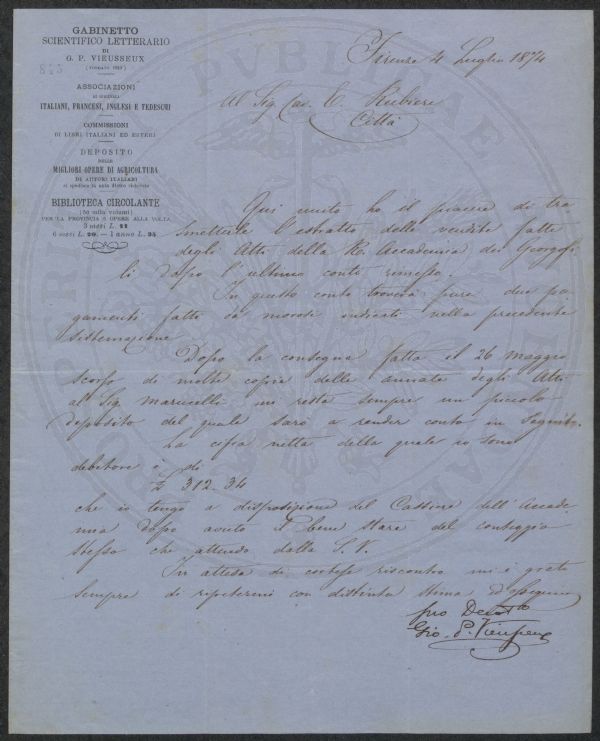 GABINETTO
SCIENTIFICO LETTERARIO
DI
G. P. VIEUSSEUX
(FONDATO 1819)
ASSOCIAZIONI
AI GIORNALI
ITALIANI, FRANCESI, INGLESI E TEDESCHI
COMMISSIONI
DI LIBRI ITALIANI ED ESTERI
DEPOSITO
DELLE
MIGLIORI OPERE DI AGRICOLTURA
DI AUTORI ITALIANI
si spedisce la nota dietro richiesta
BIBLIOTECA CIRCOLANTE
PER LA PROVINCIA 8 OPERE ALLA VOLTA
3 mesi L.
6 mesi L. 20. — 1 anno L.
Firenze 4 Luglio 1874
Al Sig. Cav. C. Rubieri
Città
Qui unito ho il piacere di tra
smetterle l'estratto delle vendite fatte
degli Atti della R. Accademia dei Georgofi
li dopo l'ultimo conto rimesso.
In questo conto troverà pure due pa
gamenti fatti da morosi indicati nella precedente
sistemazione.
Dopo la consegna fatta il 26 maggio
scorso di molte copie delle annate degli Atti
al Sig. Marucelli mi resta sempre un piccolo
deposito del quale sarò a render conto in Seguito.
La cifra netta della quale io sono
debitore è di
£ 312. 34
che io tengo a disposizione del Cassiere dell'Accade
mia dopo avuto il bene stare del conteggio
stesso che attendo dalla S. V.
In attesa di cortese riscontro mi è grato
sempre di ripetermi con distinta stima ed ossequio
suo Devotto
Gio. P. Vieusseux
PVBLICAE